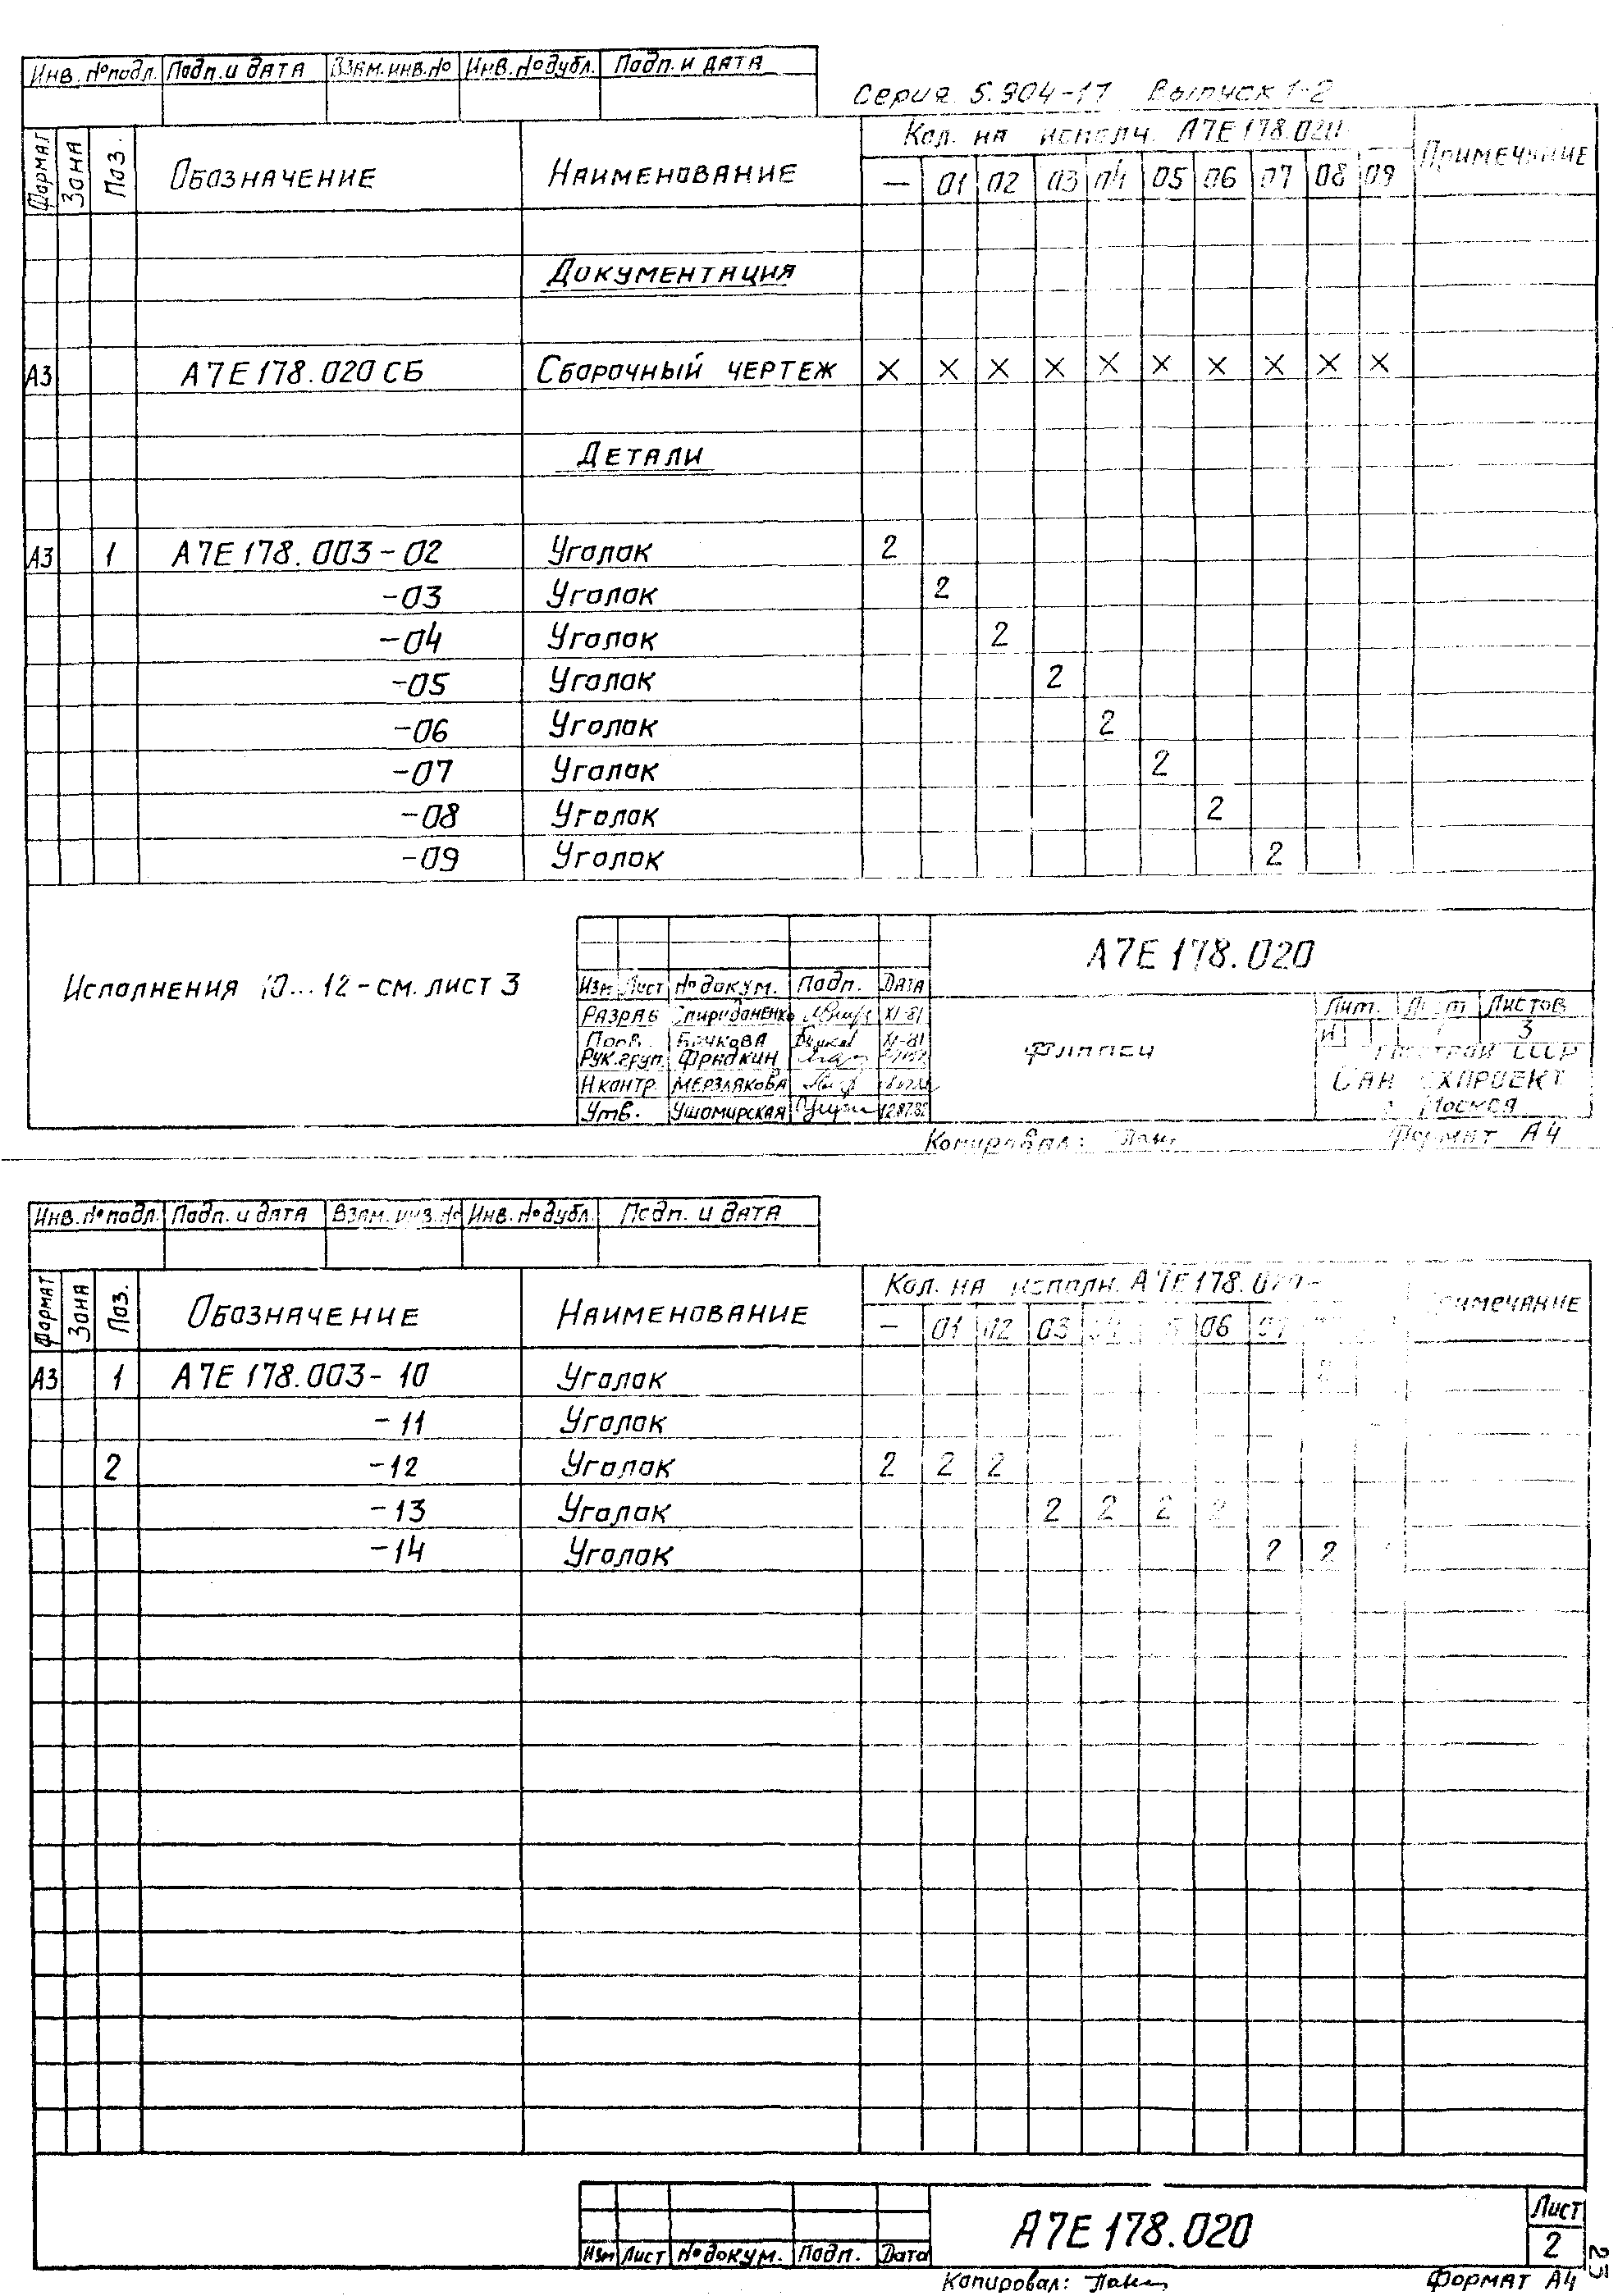 Инв. № подл. Подп. и дата Взам. инв. № Инв. № дубл. Подп. и дата
Серия 5.904-17 Выпуск 1-2
Формат Зона Поз. Обозначение Наименование Кол. на исполн. А7Е178.020- Примечание
— 01 02 03 04 05 06 07 08 09
Документация
А3 А7Е178.020 СБ Сборочный чертеж × × × × × × × × × ×
Детали
А3 1 А7Е178.003-02 Уголок 2
-03 Уголок 2
-04 Уголок 2
-05 Уголок 2
-06 Уголок 2
-07 Уголок 2
-08 Уголок 2
-09 Уголок 2
Исполнения 10...12 - см. лист 3
А7Е178.020
Изм Лист № докум. Подп. Дата
Разраб Спиридоненко XI-81
Пров. Бычкова XI-81
Рук. груп. Фридкин
Н контр. Мерзлякова
Утв. Ушомирская
Фланцы
Лит. Лист Листов
И 3
Госстрой СССР
Сантехпроект
г. Москва
Копировал: Формат А4
Инв. № подл. Подп. и дата Взам. инв. № Инв. № дубл. Подп. и дата
Формат Зона Поз. Обозначение Наименование Кол. на исполн. А7Е178.020- Примечание
— 01 02 03 04 05 06 07
А3 1 А7Е178.003-10 Уголок 2
-11 Уголок
2 -12 Уголок 2 2 2
-13 Уголок 2 2 2 2
-14 Уголок 2 2
А7Е178.020
Лист
2
Изм Лист № докум. Подп. Дата
Копировал: Формат А4
23